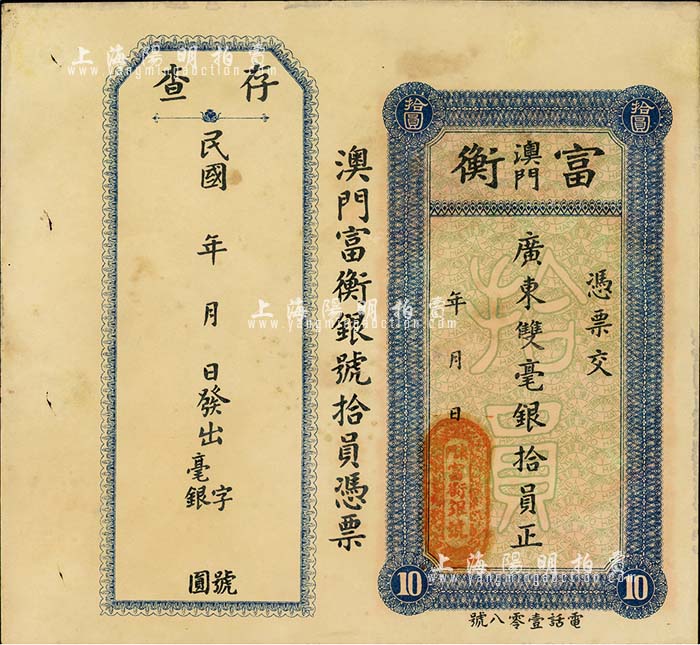 拾圓
拾圓
富
澳門
衡
憑票交
廣東雙毫銀拾員正
年月日
拾員
10
10
電話壹零八號
澳門富衡銀號拾員憑票
存查
民國年月日發出毫銀字
號圓
富衡銀號
上海陽明拍賣
www.yangmingauction.com
上海陽明拍賣
www.yangmingauction.com
上海陽明拍賣
www.yangmingauction.com